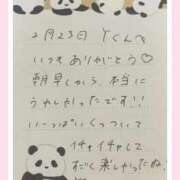 2月23日 Yくんへ
いつもありがとう♡
朝早くから、本当に
うれしかったです!!
いっぱいくっついて
イチャイチャして
すごく楽しかったね